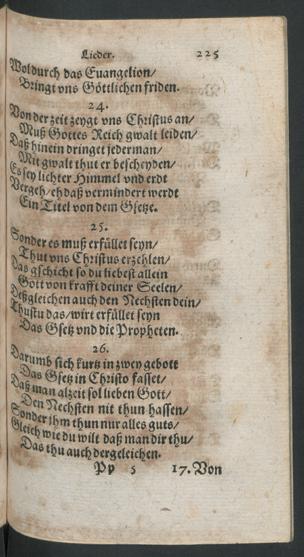 Lieder. 225
Wol durch das Euangelion/
Bringt vns Göttlichen friden.
24.
Von der zeit zeygt vns Christus an/
Muß Gottes Reich gwalt leiden/
Daß hinein dringet jederman/
Mit gwalt thut er bescheyden/
Es sey lichter Himmel vnd erdt
Vergeh/ eh daß vermindert werdt
Ein Titel von dem Gsetze.
25.
Sonder es muß erfüllet seyn/
Thut vns Christus erzehlen/
Das gschicht so du liebest allein
Gott von krafft deiner Seelen/
Deßgleichen auch den Nechsten dein/
Thustu das/ wirt erfüllet seyn
Das Gsetz vnd die Propheten.
26.
Darumb sich kurtz in zwey gebott
Das Gsetz in Christo fasset/
Daß man alzeit sol lieben Gott/
Den Nechsten nit thun hassen/
Sonder jhm thun nur alles guts/
Gleich wie du wilt daß man dir thu/
Das thu auch dergleichen.
Pp 5 17. Von